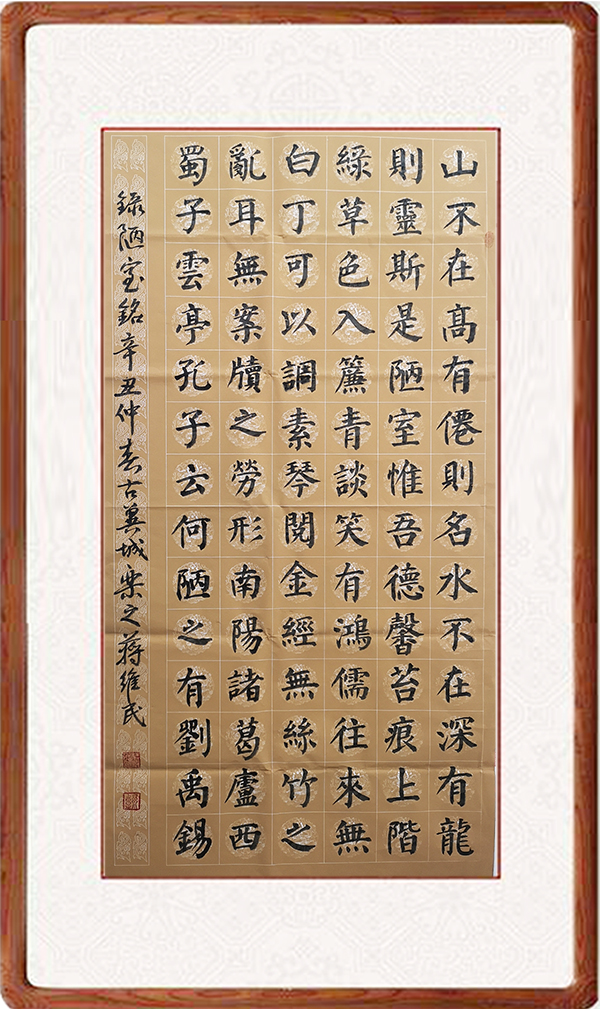 山不在高有僊則名水不在深有龍
則靈斯是陋室惟吾德馨苔痕上階
綠草色入簾青談笑有鴻儒往來無
白丁可以調素琴閱金經無絲竹之
亂耳無案牘之勞形南陽諸葛廬西
蜀子雲亭孔子云何陋之有劉禹錫
錄陋室銘辛丑仲春古冀城樂之蔣維民